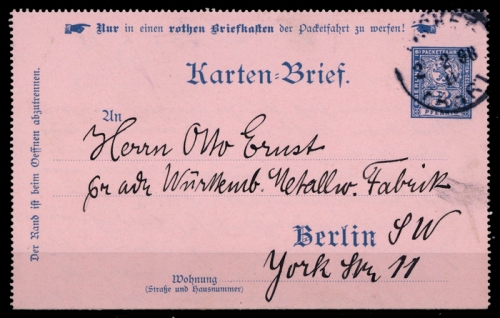 Nur in einen rothen Briefkasten der Packetfahrt zu werfen!
Karten-Brief.
PACKETFAHRT
An
Herrn Otto Ernst
pr adr Württemb. Metallw. Fabrik
Berlin SW
York Str 11
Wohnung
(Straße und Hausnummer)
Der Rand ist beim Oeffnen abzutrennen.